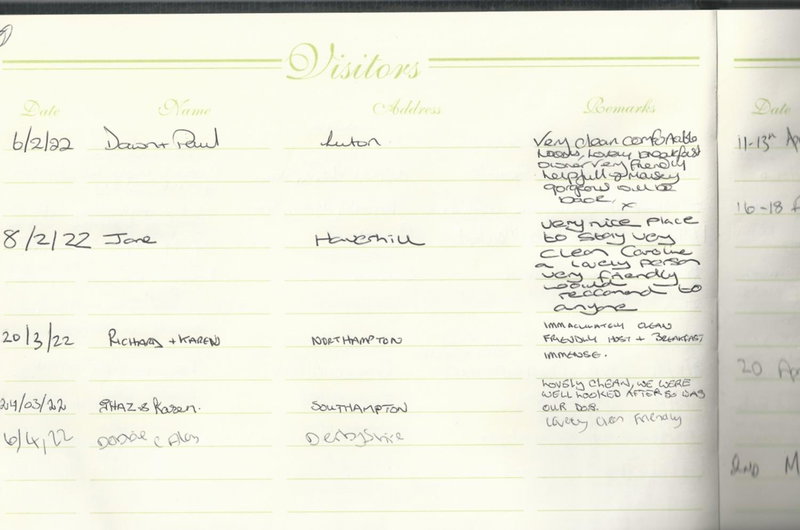 Visitors
Date Name Address Remarks
6/2/22 Dawn + Paul Luton Very clean comfortable
rooms, lovely breakfast
owner very friendly
helpfull & Maisey
gorgeous will be
back. x
8/2/22 Jane Haverhill very nice place
to stay very
clean Caroline
a lovely person
very friendly
would
reccomend to
anyone
20/3/22 RICHARD + KAREN NORTHAMPTON IMMACULATELY CLEAN
FRIENDLY HOST + BREAKFAST
IMMENSE.
24/03/22 SHAZ & Karen. SOUTHAMPTON LOVELY CLEAN, WE WERE
WELL LOOKED AFTER SO WAS
OUR DOG.
6/4/22 Derbyshire Lovely clean friendly
Date
11-13th Ap
16-18
20 Ap
2ND M